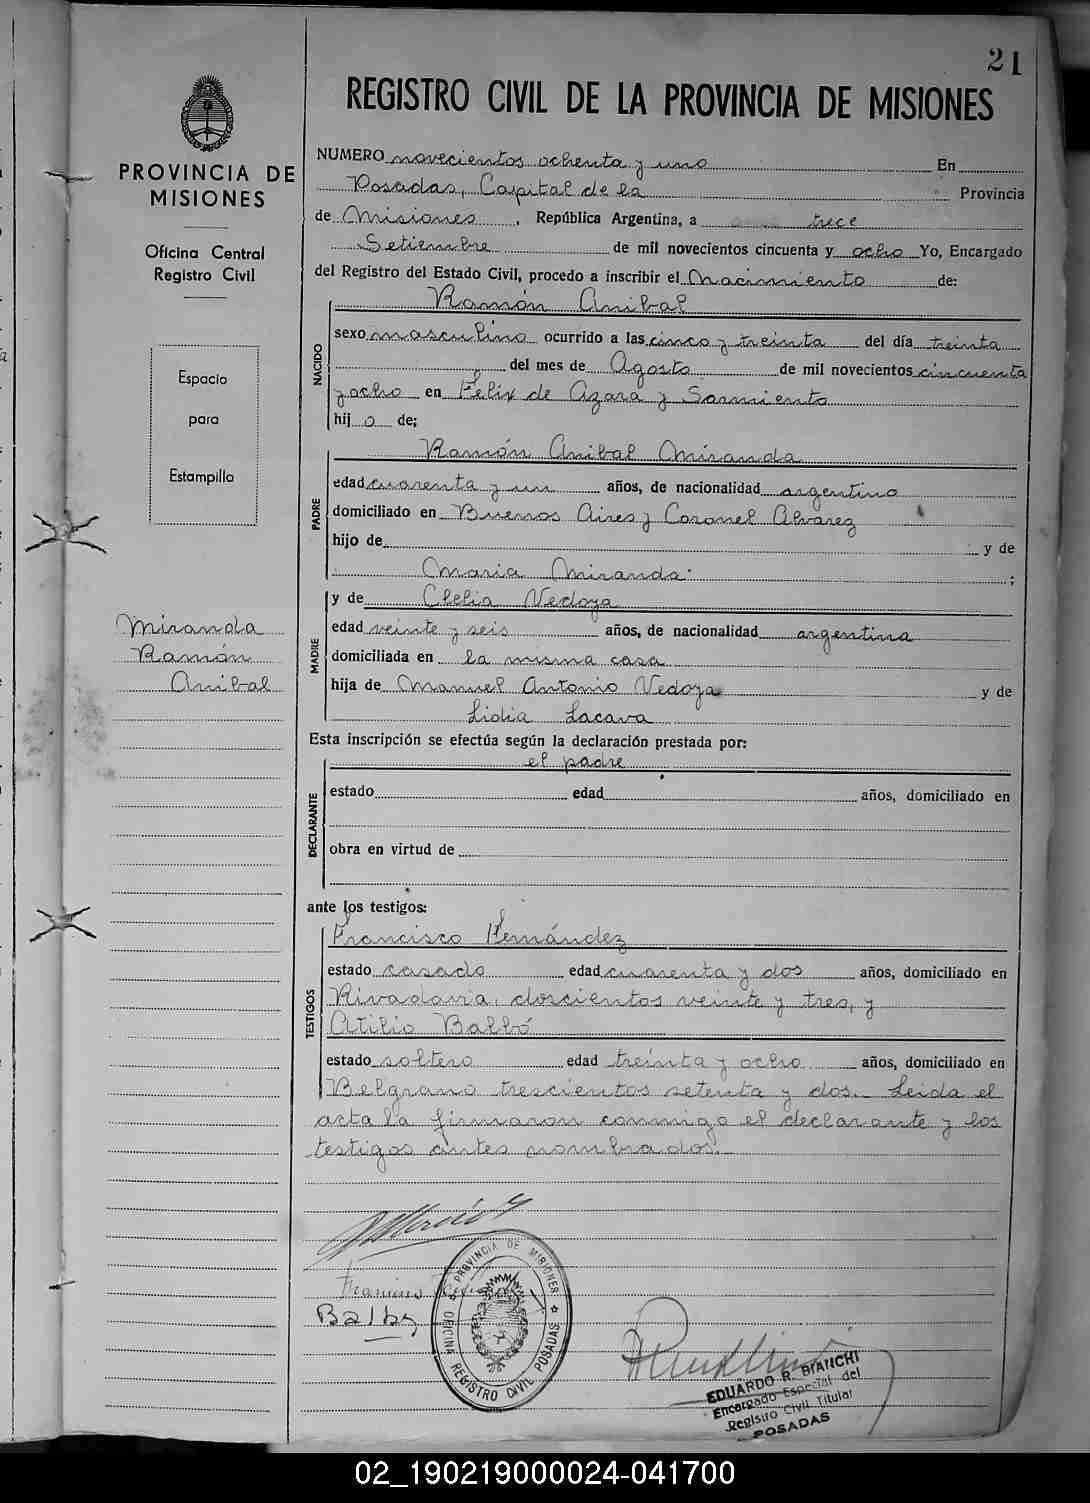 21
REGISTRO CIVIL DE LA PROVINCIA DE MISIONES
PROVINCIA DE
MISIONES
Oficina Central
Registro Civil
Espacio
para
Estampilla
Miranda
Ramón
Anibal
NUMERO novecientos ochenta y uno En
Posadas, Capital de la Provincia
de Misiones, República Argentina, a trece
Setiembre de mil novecientos cincuenta y ocho Yo, Encargado
del Registro del Estado Civil, procedo a inscribir el Nacimiento de:
NACIDO
Ramón Anibal
sexo masculino ocurrido a las cinco y treinta del día treinta
del mes de Agosto de mil novecientos cincuenta
y ocho en Félix de Azara y Sarmiento
hij o de;
PADRE
Ramón Anibal Miranda
edad cuarenta y un años, de nacionalidad argentino
domiciliado en Buenos Aires y Coronel Alvarez
hijo de y de
Maria Miranda ;
MADRE
y de Clelia Vedoya
edad veinte y seis años, de nacionalidad argentina
domiciliada en la misma casa
hija de Manuel Antonio Vedoya y de
Lidia Lacava
Esta inscripción se efectúa según la declaración prestada por:
DECLARANTE
el padre
estado edad años, domiciliado en
obra en virtud de
ante los testigos:
TESTIGOS
Francisco Fernández
estado casado edad cuarenta y dos años, domiciliado en
Rivadavia, doscientos veinte y tres, y
Atilio Balbó
estado soltero edad treinta y ocho años, domiciliado en
Belgrano trescientos setenta y dos. Leida el
acta la firmaron conmigo el declarante y los
testigos antes nombrados.
PROVINCIA DE MISIONES
OFICINA REGISTRO CIVIL POSADAS
EDUARDO R. BIANCHI
Encargado Especial del
Registro Civil Titular
POSADAS
02_190219000024-041700